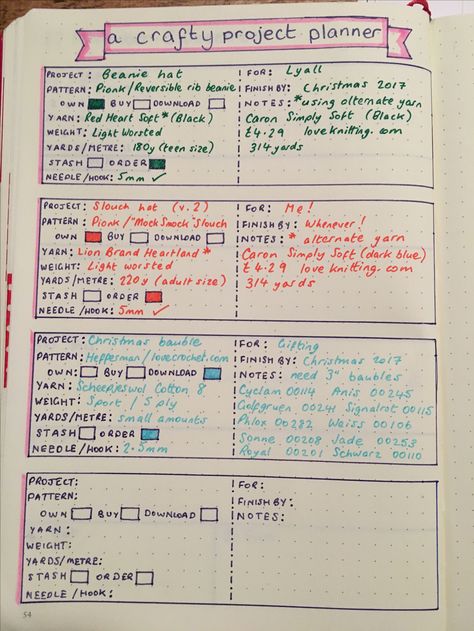 a crafty project planner
PROJECT: Beanie hat
PATTERN: Pionk/Reversible rib beanie
OWN BUY DOWNLOAD
YARN: Red Heart Soft* (Black)
WEIGHT: Light Worsted
YARDS/METRE: 180y (teen size)
STASH ORDER
NEEDLE/HOOK: 5mm ✓
FOR: Lyall
FINISH BY: Christmas 2017
NOTES: *using alternate yarn
Caron Simply Soft (Black)
£4.29 loveknitting.com
314 yards
PROJECT: Slouch hat (v.2)
PATTERN: Pionk/"Mock Smock" Slouch
OWN BUY DOWNLOAD
YARN: Lion Brand Heartland *
WEIGHT: Light worsted
YARDS/METRE: 220y (adult size)
STASH ORDER
NEEDLE/HOOK: 5mm ✓
FOR: Me!
FINISH BY: Whenever!
NOTES: * alternate yarn
Caron Simply Soft (dark blue)
£4.29 love knitting.com
314 yards
PROJECT: Christmas bauble
PATTERN: Heffesman/lovecrochet.com
OWN: BUY DOWNLOAD
YARN: Scheepjeswol Cotton 8
WEIGHT: Sport / 5 ply
YARDS/METRE: small amounts
STASH ORDER
NEEDLE/HOOK: 2.5mm
FOR: Gifting
FINISH BY: Christmas 2017
NOTES: need 3" baubles
Cyclam 00114 Anis 00245
Golfgruen 00241 Signalrot 00115
Phlox 00282 Weiss 00106
Sonne 00208 Jade 00253
Royal 00201 Schwarz 00110
PROJECT:
PATTERN:
OWN BUY DOWNLOAD
YARN:
WEIGHT:
YARDS/METRE:
STASH ORDER
NEEDLE/HOOK:
FOR:
FINISH BY:
NOTES:
54